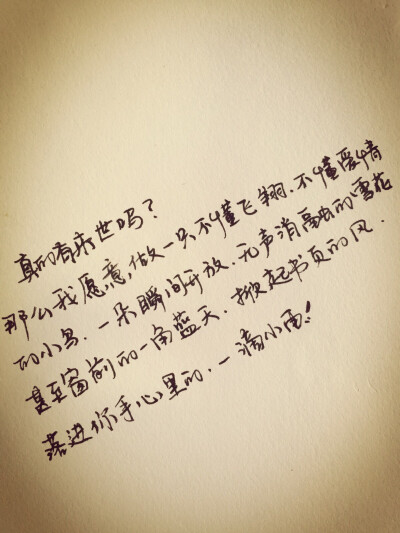 真的有来世吗？
那么我愿意，做一只不懂飞翔、不懂爱情
的小鸟、一朵瞬间开放、无声消融的雪花
甚至窗前的一角蓝天、掀起书页的风、
落进你手心里的、一滴小雨！